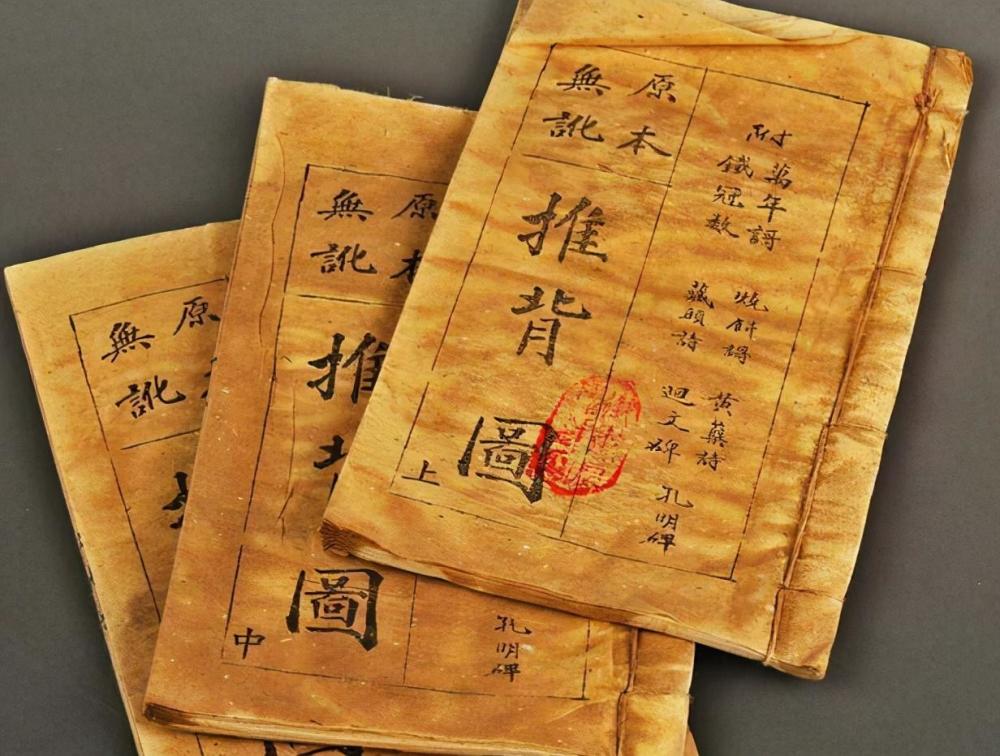 附
萬年謌
鐵冠数
燒餅謌
藏頭詩
黃蘗詩
迴文碑
孔明碑
原本
無訛
推背圖
上
孔明碑
原本
無訛
推
圖
中
原
無訛